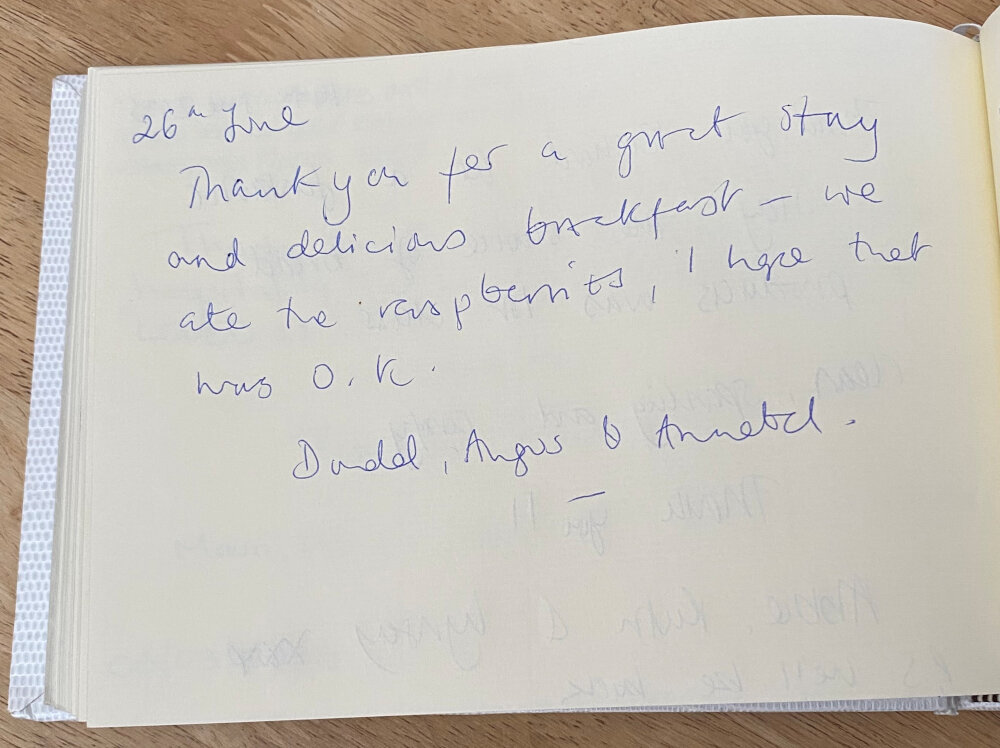 26th June
Thank you for a great stay
and delicious breakfast – we
ate the raspberries, I hope that
was O.K.
Angus &